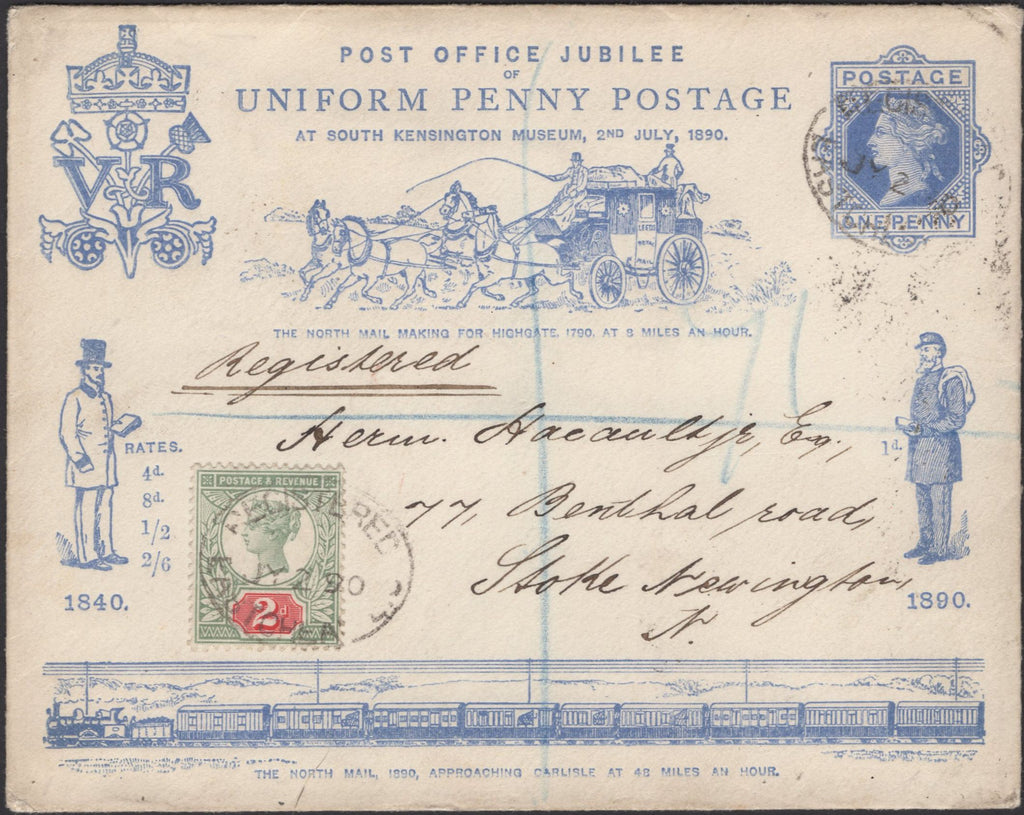 POST OFFICE JUBILEE
OF
UNIFORM PENNY POSTAGE
AT SOUTH KENSINGTON MUSEUM, 2ND JULY, 1890.
VR
POSTAGE
ONE PENNY
JY 2
LEEDS
THE NORTH MAIL MAKING FOR HIGHGATE, 1790, AT 8 MILES AN HOUR.
Registered
Herm. Hacault jr, Esq.,
77, Benthal road,
Stoke Newington,
N.
RATES.
4d.
8d.
1/2
2/6
1840.
1d.
1890.
POSTAGE & REVENUE
2d
REGISTERED
90
THE NORTH MAIL, 1890, APPROACHING CARLISLE AT 48 MILES AN HOUR.